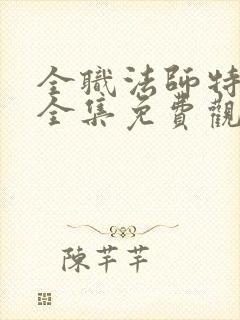 全職法師特
全集免費觀
陳芊芊